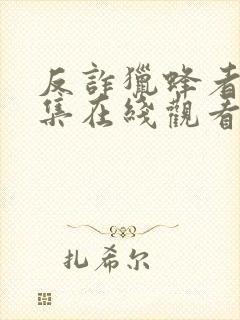 反詐獵蜂者
集在綫觀看
扎希尔